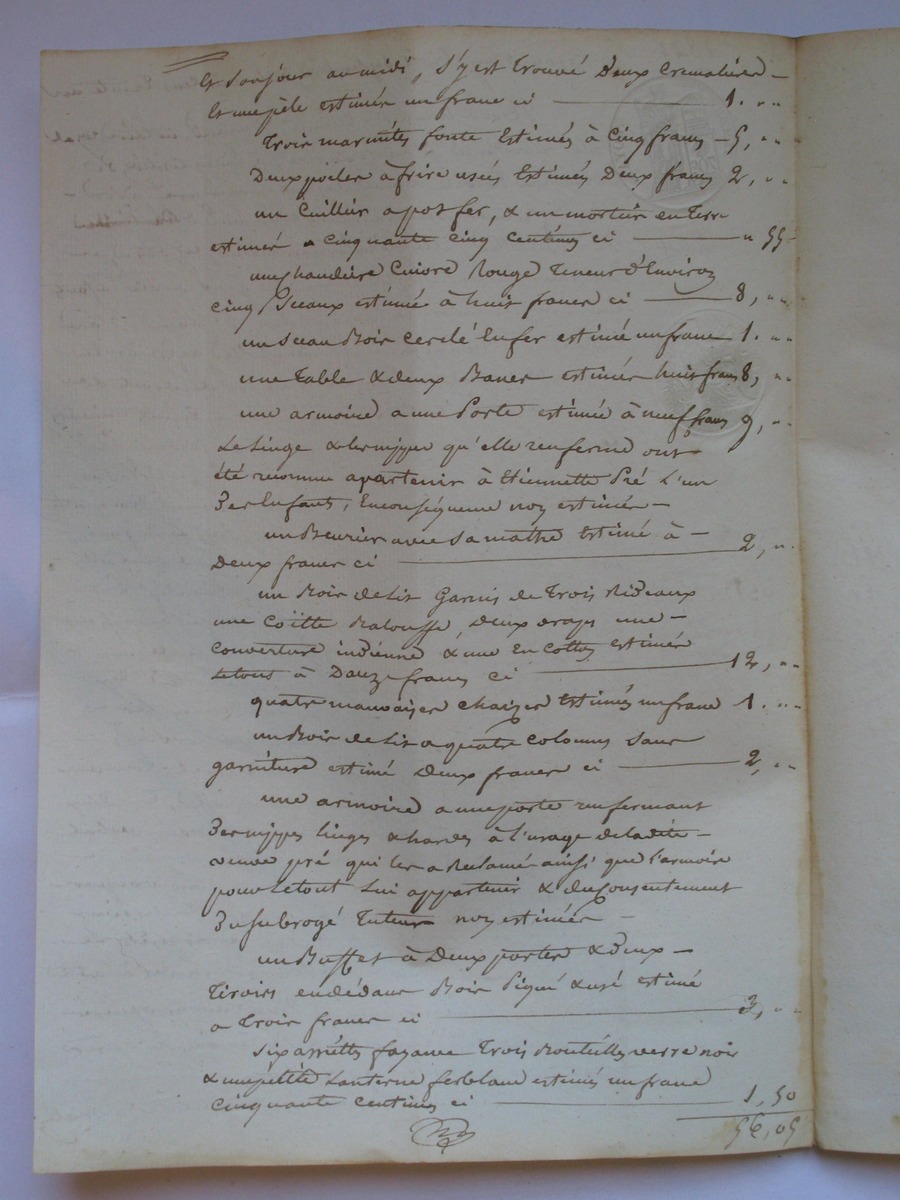 et Soujour au midi, s'y est trouvé Deux Cremalières
Et une pèle estimés un franc ci 1. " "
Trois marmites fonte Estimés à Cinq francs 5, " "
Deux poiles à frire usées Estimés Deux francs 2, " "
un Cuillier a pot fer, & un mortier en Terre
estimés a Cinquante cinq Centimes ci " 55
une Chaudière Cuivre Rouge Teneur d'Environ
cinq Sceaux estimée à huit francs ci 8, " "
un Sceau Bois Cerclé En fer estimé un franc 1. " "
une Table & deux Bancs estimés huit francs 8, " "
une armoire a une Porte estimée à neuf francs 9, " "
Le Linge & les nippes qu'elle renferme ont
été reconnu apartenir à Etiennette Pré L'un
Des Enfants, En conséquence non estimés
un Beurier avec sa estimé à
Deux francs ci 2, "
un Bois de Lit Garnis de Trois Rideaux
une Coëtte Balouffe, Deux draps une
Couverture indienne & une En Cotton estimés
Le tout à Douze francs ci 12, " "
quatre mauvaises chaises Estimés un franc 1. " "
un Bois de Lit a quatre Colonnes Sans
garniture estimé Deux francs ci 2, " "
une armoire a une porte renfermant
Des nippes linges & hardes à l'usage de la dite
veuve pré qui les a Réclamés ainsi que l'armoire
pour Le tout Lui appartenir & du Consentement
Du subrogé Tuteur non estimés
un Buffet à Deux portes & Deux
Tiroirs en dédans Bois Piqué & usé estimé
a Trois francs ci 3, " "
Six assiettes fayance Trois Bouteilles verre noir
& une petite Lanterne ferblanc estimés un franc
Cinquante Centimes ci 1, 50
56, 05